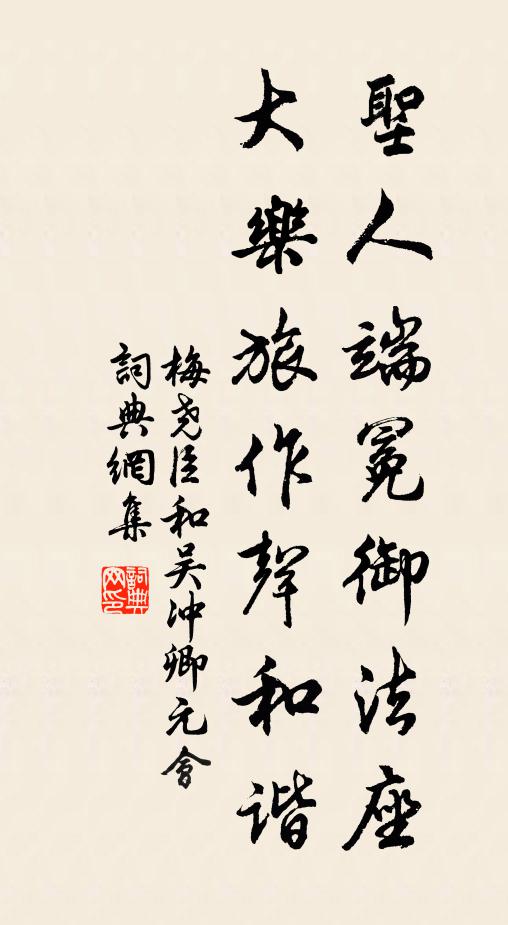 聖人端冕御法座
大樂旅作聲和諧
梅堯臣和吴沖卿元會
詞典網集
詞典
网印